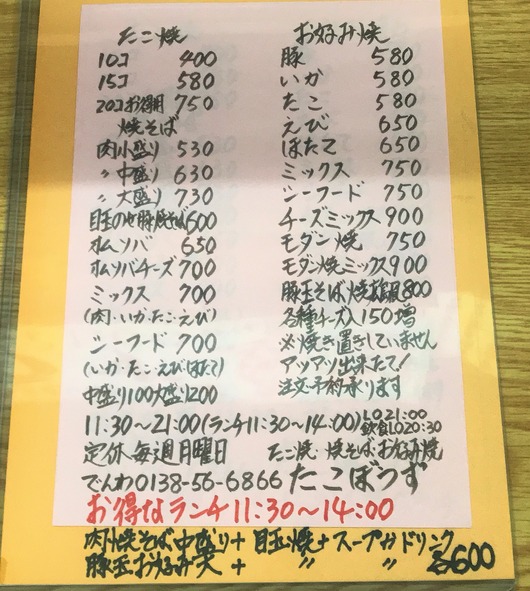 たこ焼
10コ 400
15コ 580
20コお得用 750
焼そば
肉小盛り 530
〃中盛り 630
〃大盛り 730
目玉のせ豚焼そば600
オムソバ 650
オムソバチーズ700
ミックス 700
(肉・いか・たこ・えび)
シーフード 700
(いか・たこ・えびほたて)
中盛り100大盛り200
お好み焼
豚 580
いか 580
たこ 580
えび 650
ほたて 650
ミックス 750
シーフード 750
チーズミックス900
モダン焼 750
モダン焼ミックス900
豚玉そば焼 800
各種チーズ入150増
※焼き置きしていません
アツアツ出来たて!
注文・予約承ります
11:30〜21:00(ランチ11:30〜14:00)L.O21:00
飲食L.O20:30
定休 毎週月曜日 たこ焼・焼そば・お好み焼
でんわ0138-56-6866 たこぼうず
お得なランチ11:30〜14:00
肉焼そば中盛り+目玉焼+スープかドリンク
豚玉お好み大 + 〃 〃 各600